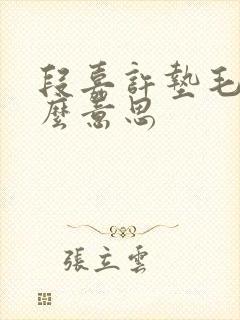 段嘉許墊毛
麼意思
張立雲